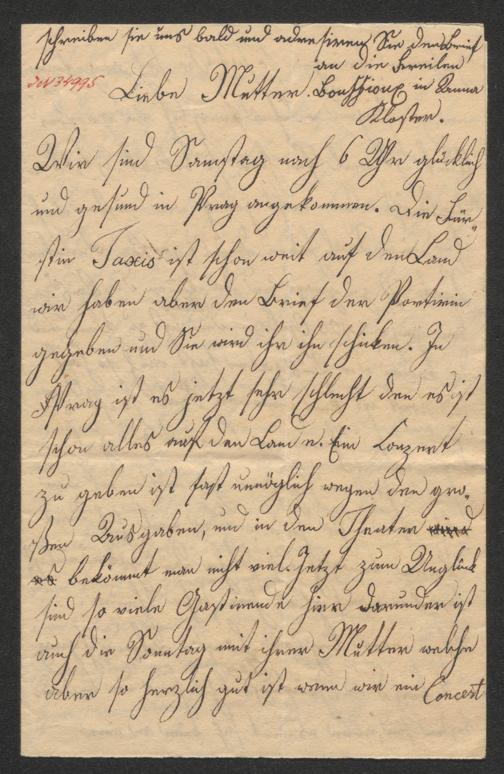 schreiben sie uns bald und adresiren Sie den Brief
an die Freilen
JN 34995
Liebe Mutter. in Anna
Kloster.
Wir sind Samstag nach 6 Uhr glücklich
und gesund in Prag angekommen. Die Für-
stin Taxis ist schon weit auf den Land
wir haben aber den Brief der Portirin
gegeben und Sie wird ihr ihn schicken. In
Prag ist es jetzt sehr schlecht den es ist
schon alles auf den Land u. Ein Conzert
zu geben ist fast unmöglich wegen den gro-
ßen Ausgaben, und in den Theater
bekommt man nicht viel. Jetzt zum Unglück
sind so viele Gastirende hier darunder ist
auch die Sonntag mit ihrer Mutter welche
aber so herzlich gut ist wenn wir ein Concert